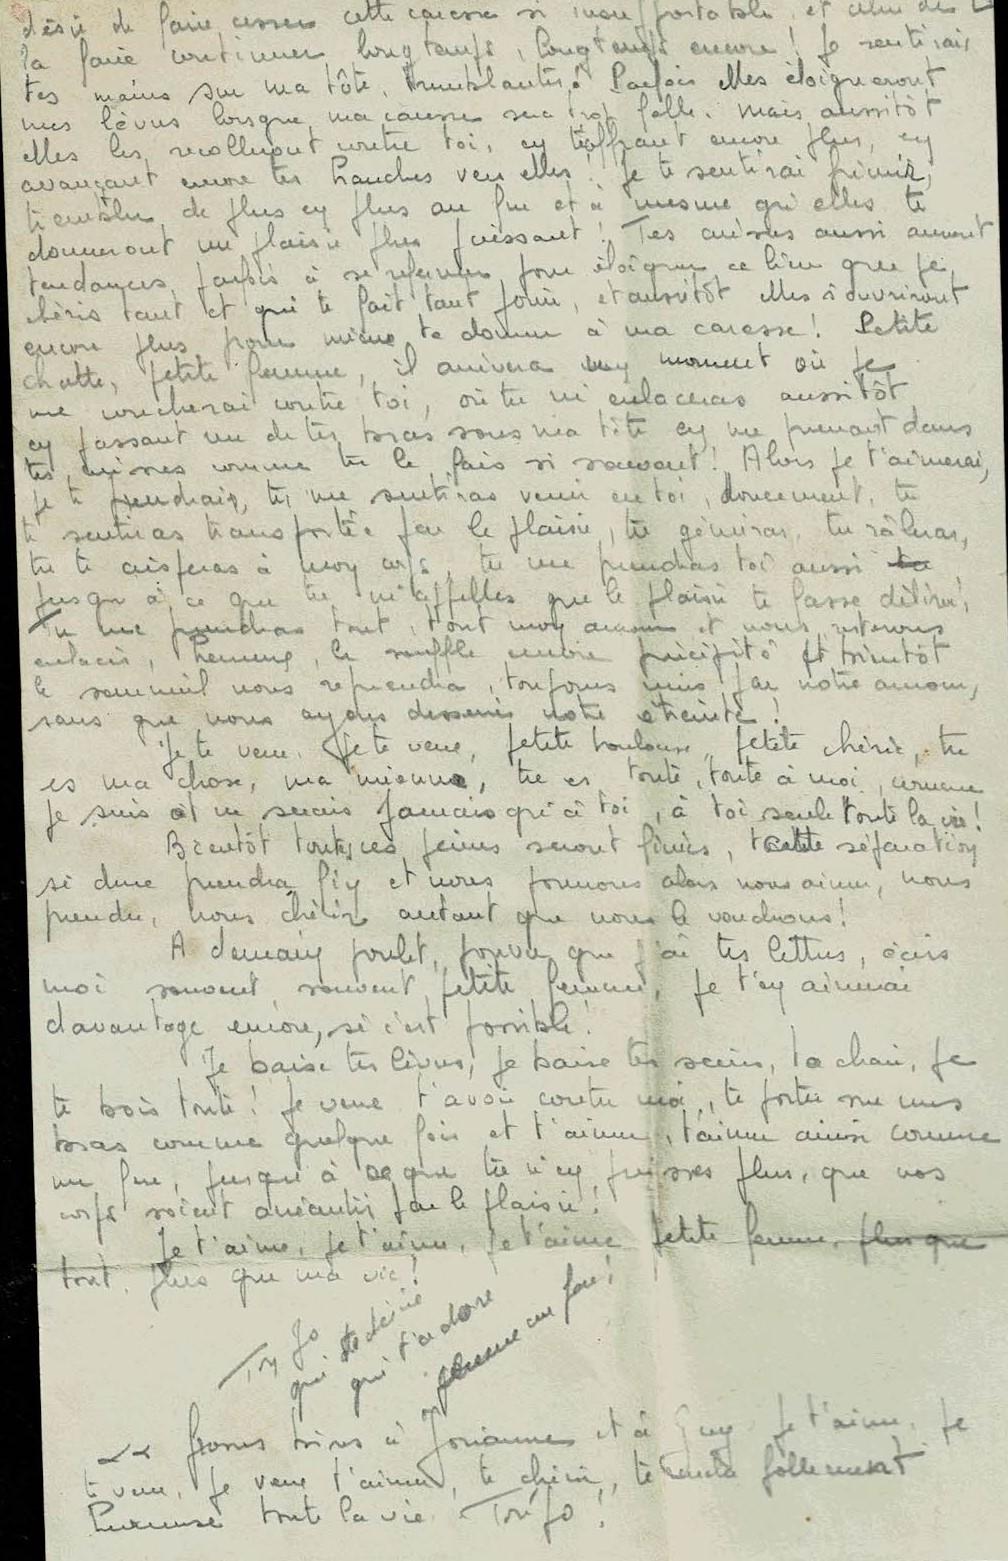 désir de faire cesser cette caresse si insupportable, et celui de
la faire continuer longtemps, longtemps encore! Je sentirais
tes mains sur ma tête, tremblantes! Parfois elles éloigneront
mes lèvres lorsque ma caresse sera trop folle. Mais aussitôt
elles les recolleront contre toi, en t'offrant encore plus, en
avançant encore tes hanches vers elles! Je te sentirai frémir,
trembler de plus en plus au fur et à mesure qu'elles te
donneront un plaisir plus puissant! Tes cuisses aussi auront
tendances parfois à se refermer pour éloigner ce lieu que je
chéris tant et qui te fait tant jouir, et aussitôt elles s'ouvriront
encore plus pour mieux te donner à ma caresse! Petite
chatte, petite femme, il arrivera un moment où je
me coucherai contre toi, où tu m'enlaceras aussitôt
en passant un de tes bras sous ma tête en me prenant dans
tes cuisses comme tu le fais si souvent! Alors je t'aimerai,
je te prendrais, tu me sentiras venir en toi, doucement, tu
te sentiras transportée par le plaisir, tu gémiras, tu râleras,
tu te crisperas à mon corps, tu me prendras toi aussi
jusqu'à ce que tu m'appelles que le plaisir te fasse délirer!
Tu me prendras tout, tout mon amour et nous resterons
enlacés, heureux, le souffle encore précipité et bientôt
le sommeil nous reprendra, toujours unis par notre amour,
sans que nous ayons desserré notre étreinte!
Je te veux. Je te veux, petite, petite chérie, tu
es ma chose, ma mienne, tu es toute, toute à moi, comme
je suis et ne serais jamais qu'à toi, à toi seule toute la vie!
Bientôt toutes ces peines seront finies, cette séparation
si dure prendra fin et nous pourrons alors nous aimer, nous
prendre, nous chérir autant que nous le voudrons!
A demain poulet, pourvu que j'ai tes lettres, écris
moi souvent, souvent, petite femme, je t'en aimerai
davantage encore, si c'est possible!
Je baise tes lèvres, je baise tes seins, ta chair, je
te bois toute! Je veux t'avoir contre moi, te porter sur mes
bras comme quelque fois et t'aimer, t'aimer ainsi comme
un fou, jusqu'à ce que tu n'en puisses plus, que nos
corps soient anéantis par le plaisir!
Je t'aime, je t'aime, je t'aime petite femme, plus que
tout, plus que ma vie!
Ton Jo
qui te désire
qui t'adore
comme un fou!
Grosses bises à Josianne et à Guy. Je t'aime. Je
te veux. Je veux t'aimer, te chérir, te rendre follement
heureuse toute la vie. Ton Jo!